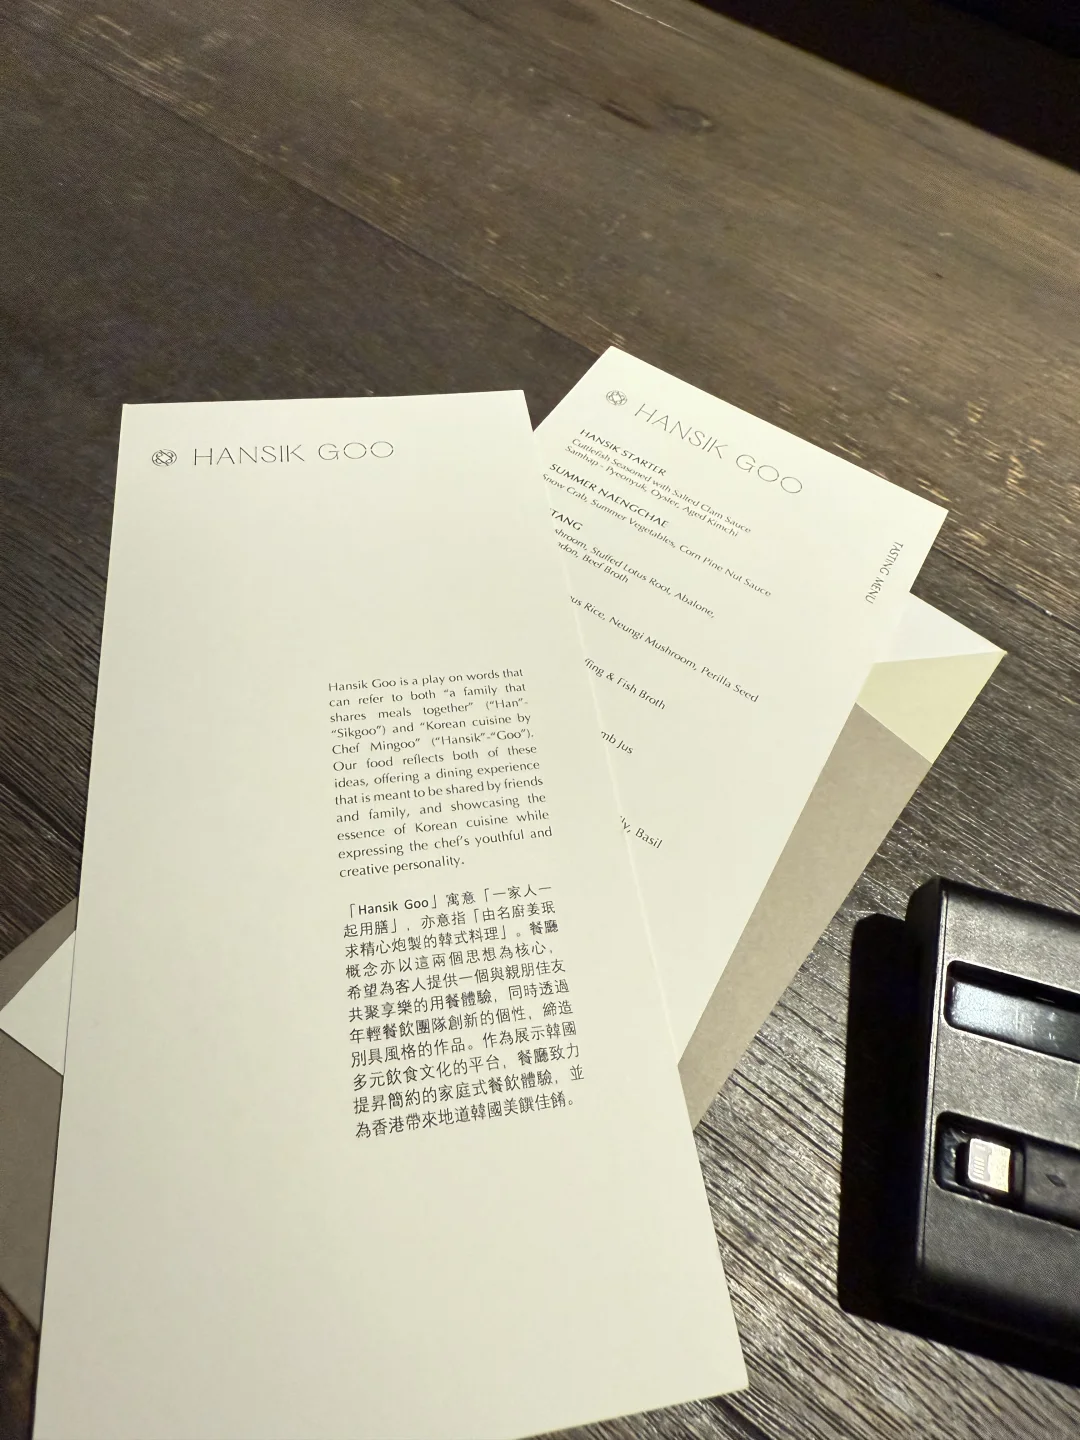 HANSIK GOO
Hansik Goo is a play on words that
can refer to both “a family that
shares meals together” (“Han”-
“Sikgoo”) and “Korean cuisine by
Chef Mingoo” (“Hansik”-“Goo”).
Our food reflects both of these
ideas, offering a dining experience
that is meant to be shared by friends
and family, and showcasing the
essence of Korean cuisine while
expressing the chef’s youthful and
creative personality.
「Hansik Goo」寓意「一家人一
起用膳」，亦意指「由名廚姜珉
求精心炮製的韓式料理」。餐廳
概念亦以這兩個思想為核心，
希望為客人提供一個與親朋佳友
共聚享樂的用餐體驗，同時透過
年輕餐飲團隊創新的個性，締造
別具風格的作品。作為展示韓國
多元飲食文化的平台，餐廳致力
提昇簡約的家庭式餐飲體驗，並
為香港帶來地道韓國美饌佳餚。
HANSIK GOO
HANSIK STARTER
Cuttlefish Seasoned with Salted Clam Sauce
Samhap - Pyeonyuk, Oyster, Aged Kimchi
SUMMER NAENGCHAE
Snow Crab, Summer Vegetables, Corn Pine Nut Sauce
TANG
Stuffed Lotus Root, Abalone,
Beef Broth
Rice, Neungi Mushroom, Perilla Seed
& Fish Broth
Jus
Basil
TASTING MENU